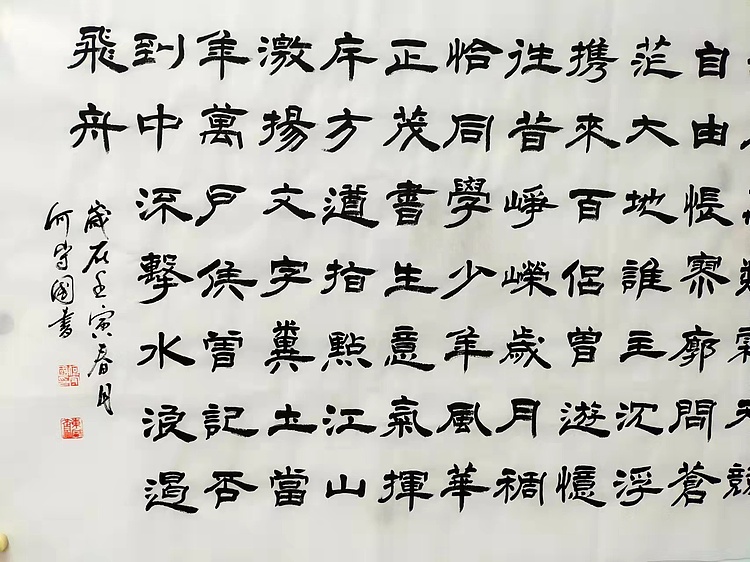 自由悵寥廓問蒼
茫大地誰主沈浮
携來百侣曾遊憶
往昔崢嶸歲月稠
恰同學少年風華
正茂書生意氣揮
斥方遒指點江山
激揚文字糞土當
年萬戶侯曾記否
到中流擊水浪遏
飛舟
歲在壬寅春月
何守國書